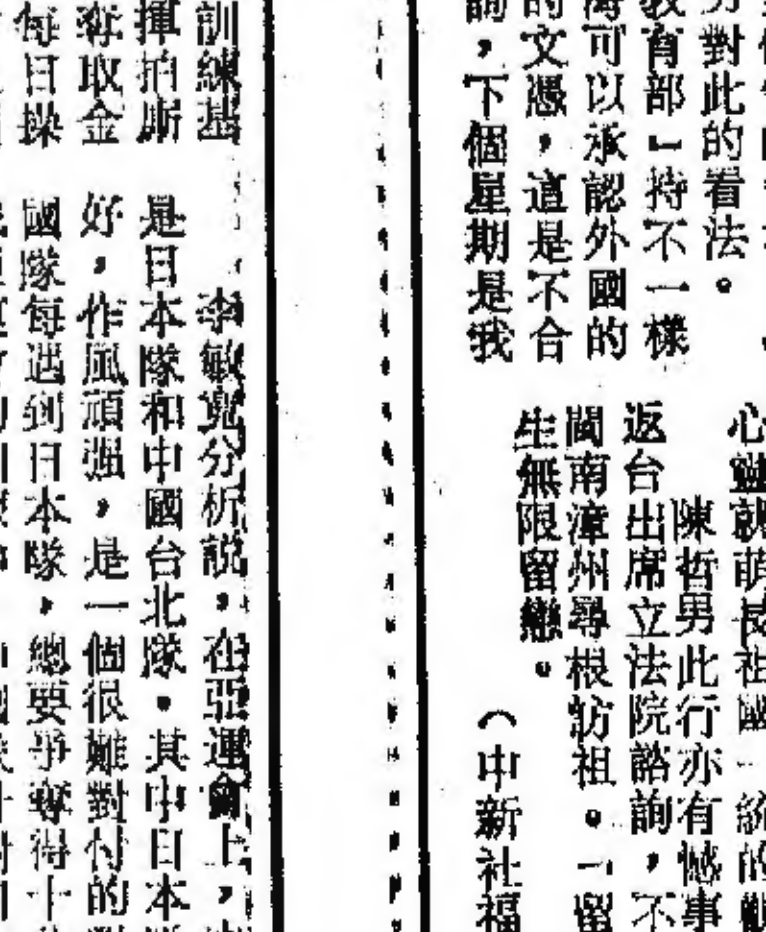 對此的看法。
教育部「持不一樣
可以承認外國的
的文憑,這是不合
詢,下個星期是我
陳哲男此行亦有憾事
返台出席立法院諮詢,不
閩南漳州尋根訪祖。「留
生無限留戀。
(中新社福
訓練基
揮拍斯
奪取金
每日操
李敏寬分析說,在亞運會上,
是日本隊和中國台北隊。其中日本
好,作風頑强,是一個很難對付的
國隊每遇到日本隊,總要爭奪得十